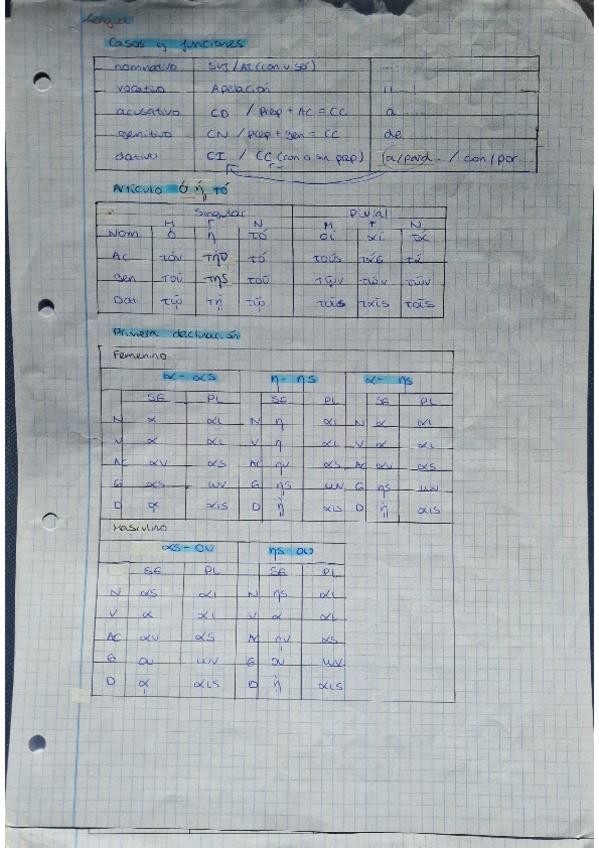 Lengua
Casos y funciones
nominativo SUJ / At (con v. só) ...
vocativo Apelación ¡! !
acusativo CD / Prep + AC = CC a ...
genitivo CN / prep + gen = CC de ...
dativo CI / CC (con o sin prep) (a/para... / con / por...
Artículo ὁ ἡ τό
Singular Plural
M F N M F N
Nom ὁ ἡ τό οἱ αἱ τά
Ac τόν τήν τό τούς τάς τά
Gen τοῦ τῆς τοῦ τῶν τῶν τῶν
Dat τῷ τῇ τῷ τοῖς ταῖς τοῖς
Primera declinación
Femenino
α - ας η - ης α - ης
SG PL SG PL SG PL
N α αι N η αι N α αι
V α αι V η αι V α αι
AC αν ας AC ην ας AC αν ας
G ας ων G ης ων G ης ων
D ᾳ αις D ῃ αις D ῃ αις
Masculino
ας - ου ης - ου
SG PL SG PL
N ας αι N ης αι
V α αι V α αι
AC αν ας AC ην ας
G ου ων G ου ων
D ᾳ αις D ῃ αις